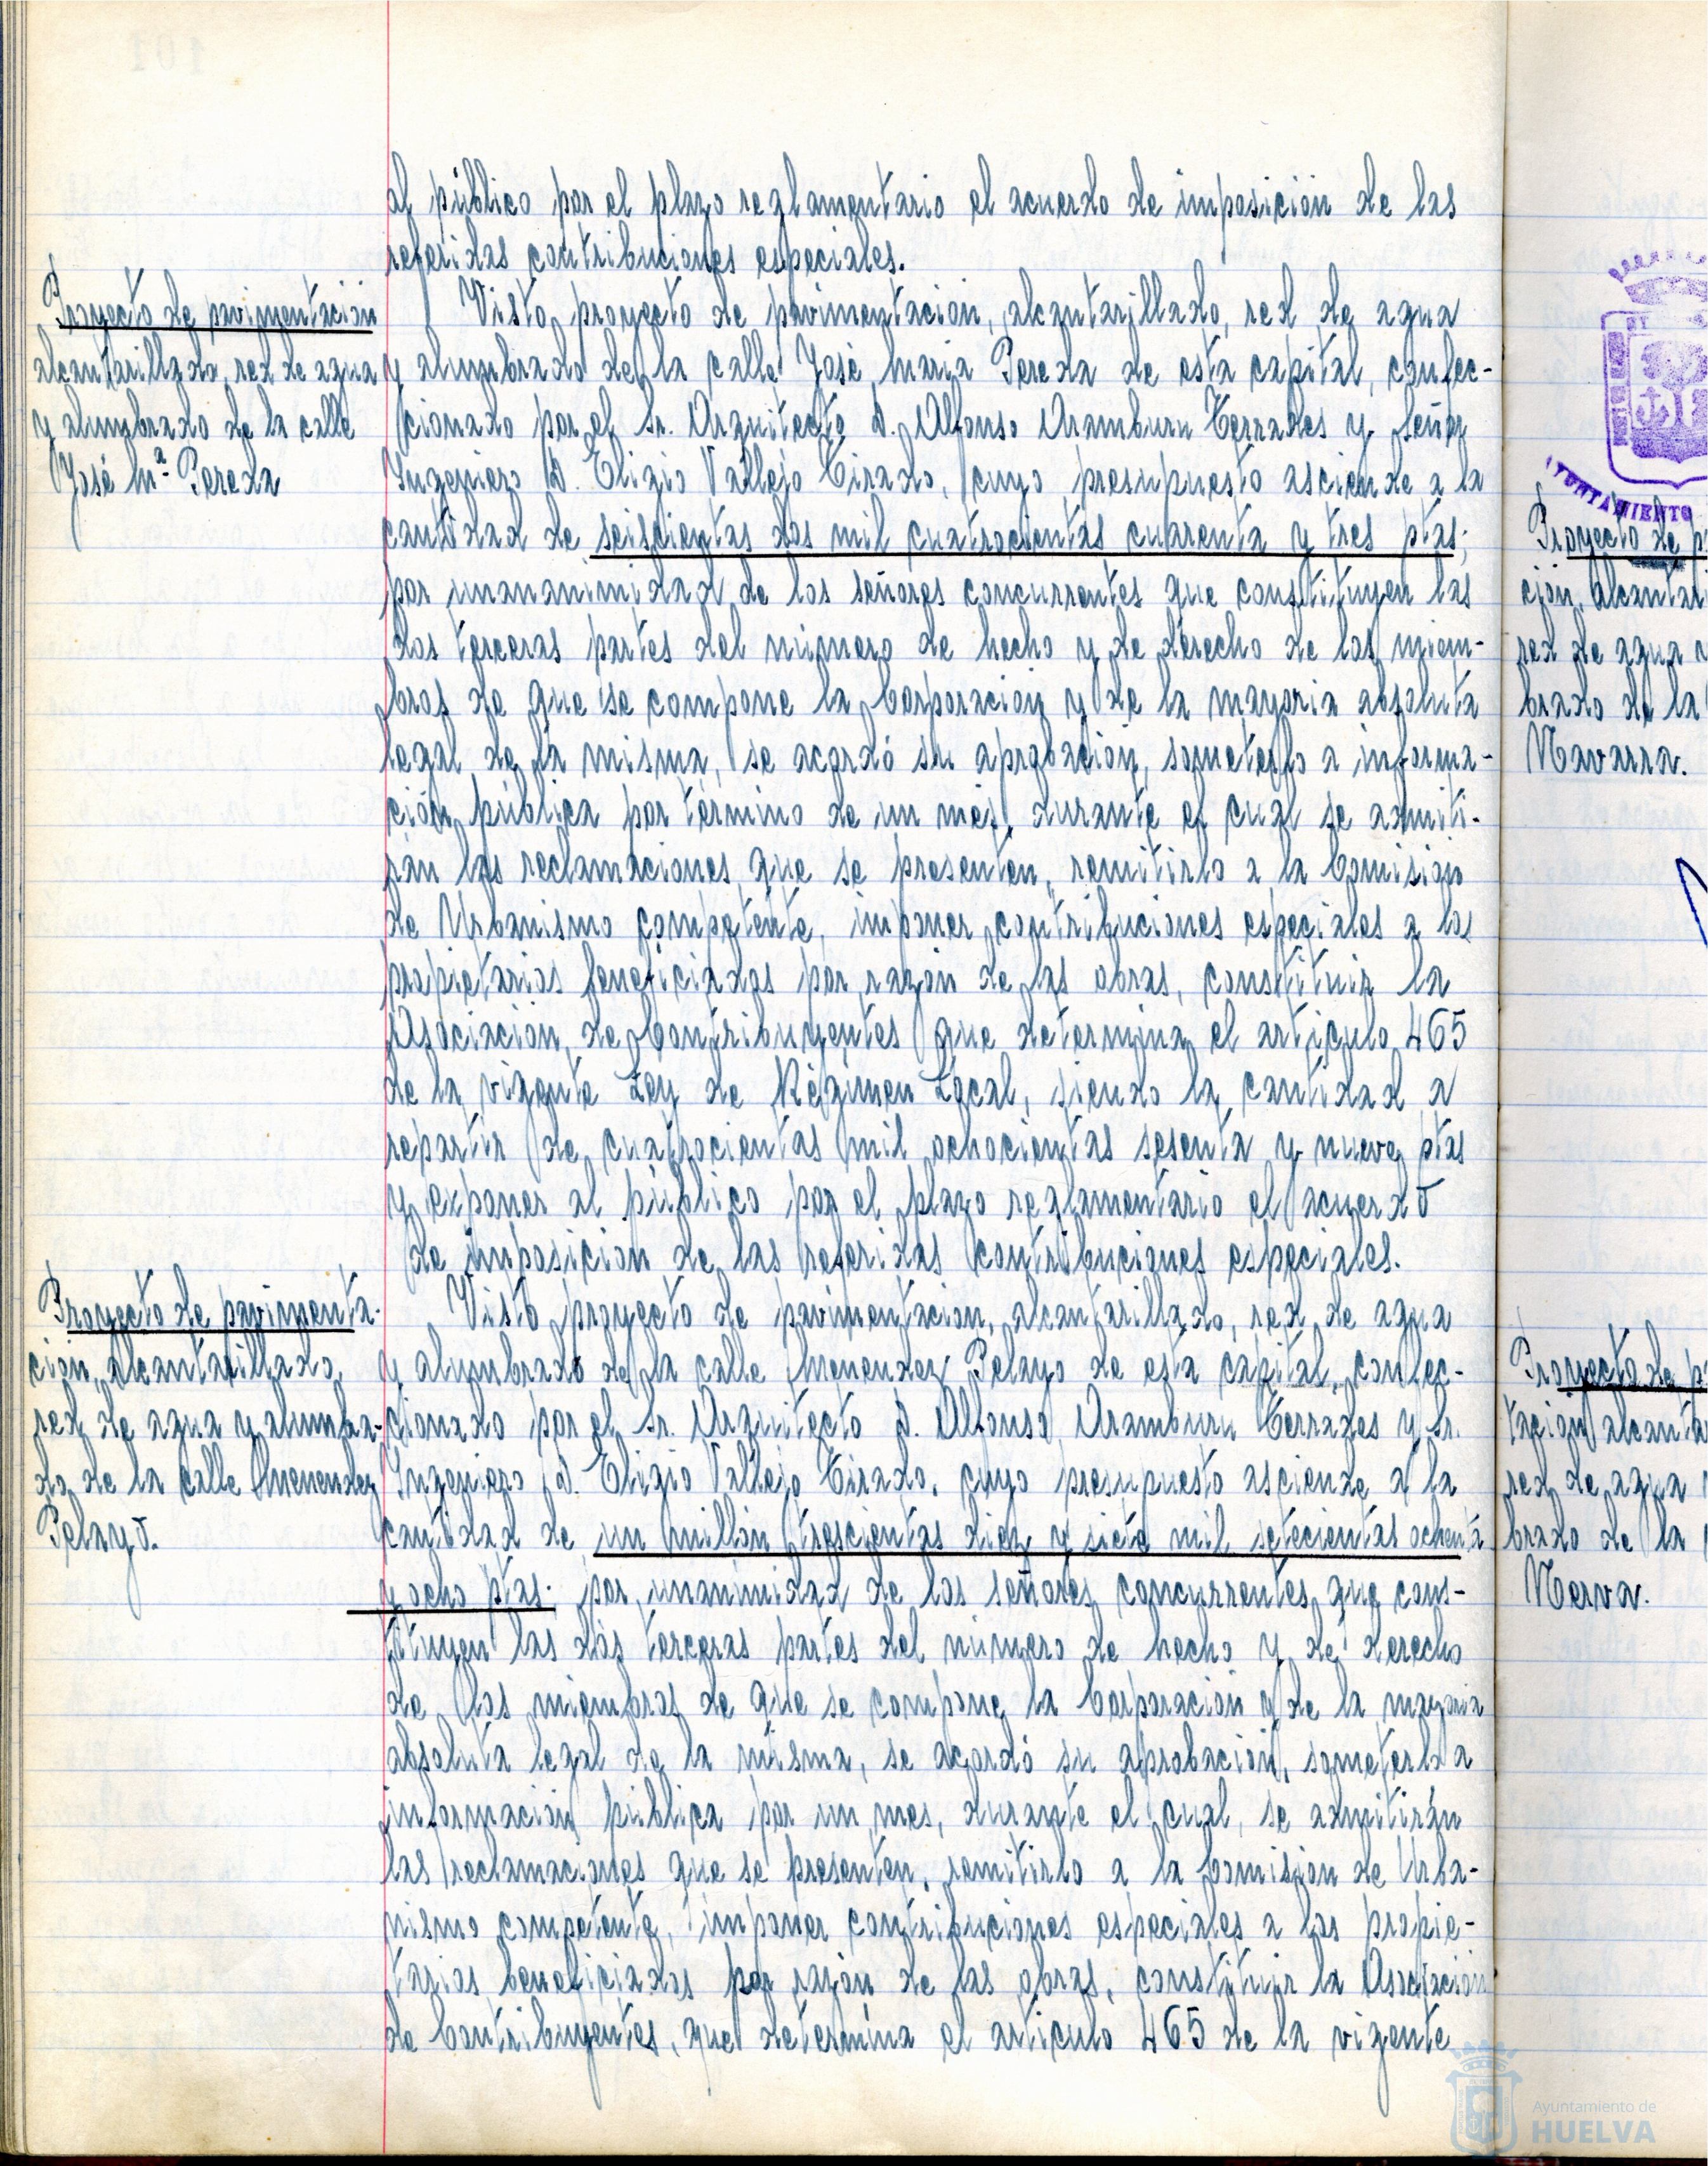 al público por el plazo reglamentario el acuerdo de imposición de las
referidas contribuciones especiales.
Proyecto de pavimentación
alcantarillado, red de agua
y alumbrado de la calle
José Mª Pereda
Visto proyecto de pavimentación, alcantarillado, red de agua
y alumbrado de la calle José María Pereda de esta capital, confec-
cionado por el Sr. Arquitecto D. Alfonso Aramburu Terrades y Señor
Ingeniero D. Eligio Vallejo Tirado, cuyo presupuesto asciende a la
cantidad de seiscientas dos mil cuatrocientas cuarenta y tres ptas;
por unananimidad de los señores concurrentes que constituyen las
dos terceras partes del número de hecho y de derecho de los miem-
bros de que se compone la Corporación y de la mayoria absoluta
legal de la misma, se acordó su aprobación, someterlo a informa-
ción pública por término de un mes, durante el cual se admiti-
rán las reclamaciones que se presenten, remitirlo a la Comisión
de Urbanismo competente, imponer contribuciones especiales a los
propietarios beneficiados por razón de las obras, constituir la
Asociación de Contribuyentes que determina el artículo 465
de la vigente Ley de Régimen Local, siendo la cantidad a
repartir de cuatrocientas mil ochocientas sesenta y nueve ptas
y exponer al público por el plazo reglamentario el acuerdo
de imposición de las referidas contribuciones especiales.
Proyecto de pavimenta-
ción, alcantarillado,
red de agua y alumbra-
do de la calle Menendez
Pelayo.
Visto proyecto de pavimentación, alcantarillado, red de agua
y alumbrado de la calle Menendez Pelayo de esta capital, confec-
cionado por el Sr. Arquitecto D. Alfonso Aramburu Terrades y Sr.
Ingeniero D. Eligio Vallejo Tirado, cuyo presupuesto asciende a la
cantidad de un millón trescientas diez y siete mil setecientas ochenta
y ocho ptas; por unanimidad de los señores concurrentes que cons-
tituyen las dos terceras partes del número de hecho y de derecho
de los miembros de que se compone la Corporación y de la mayoria
absoluta legal de la misma, se acordó su aprobación, someterlo a
información pública por un mes, durante el cual, se admitirán
las reclamaciones que se presenten, remitirlo a la Comisión de Urba-
nismo competente, imponer contribuciones especiales a los propie-
tarios beneficiados por razón de las obras, constituir la Asociación
de Contribuyentes, que determina el artículo 465 de la vigente
Proyecto de p
ción, alcantar
red de agua y
brado de la
Navarra.
Proyecto de p
tación alcanta
red de agua
brado de la
Nerva.
Ayuntamiento de
HUELVA